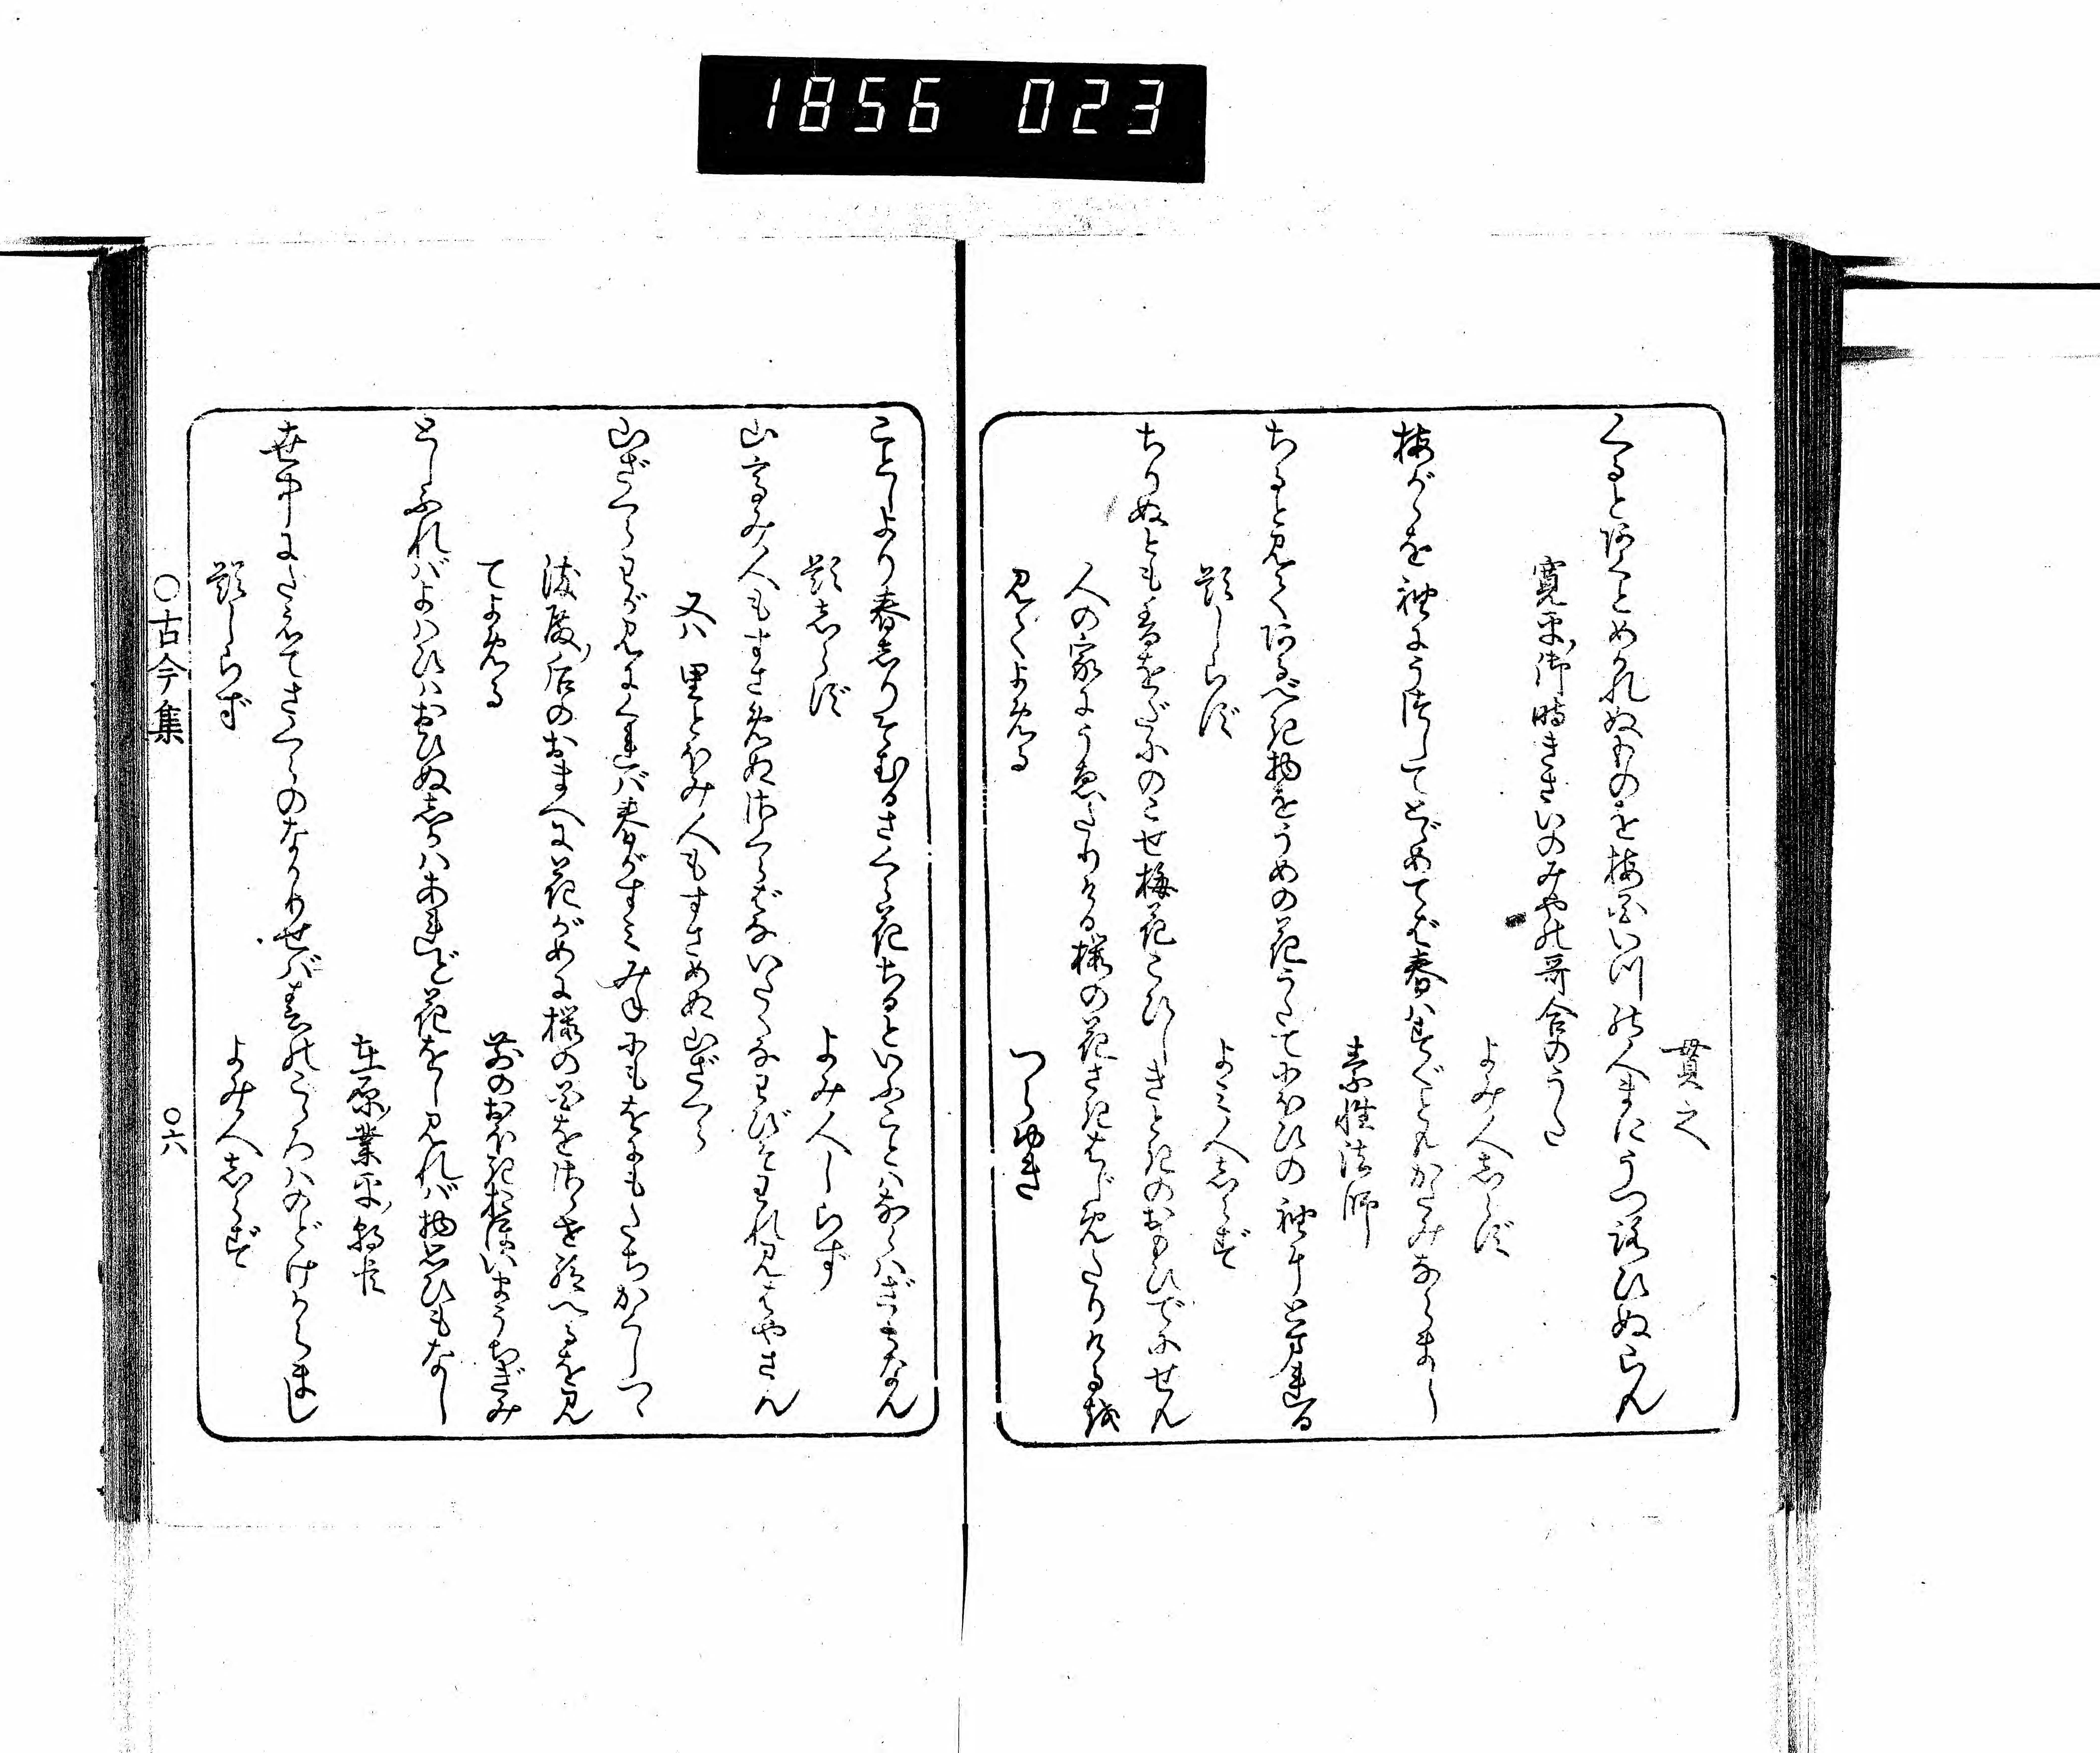 1856 023
貫之
くるとあくとめかれぬものを梅花いつの人まにうつろひぬらん
寛平御時きさいのみやの哥合のうた
よみ人しらず
梅がゝを袖にうつしてとゞめてば春はすぐともかたみならまし
素性法師
ちると見てあるべき物をうめの花うたてにほひの袖にとまれる
題しらず
よみ人しらず
ちりぬとも香をだにのこせ梅花こひしきときのおもひでにせん
人の家にうゑたりける桜の花さきはじめたりけるを
見てよめる
つらゆき
ことしより春しりそむるさくら花ちるといふことはならはざらなん
題しらず
よみ人しらず
山高み人もすさめぬさくらばないたくなわびそわれ見はやさん
又ハ里とほみ人もすさめぬ山ざくら
山ざくらわが見にくれば春がすみみねにもをにもたちかくしつゝ
染殿后のおまへに花がめに桜の花をさゝせ給へるを見
てよめる
前のおほきおほいまうちぎみ
としふればよはひはおいぬしかはあれど花をし見れば物思ひもなし
在原業平朝臣
世中にたえてさくらのなかりせば春のこゝろはのどけからまし
題しらず
よみ人しらず
○古今集
○六